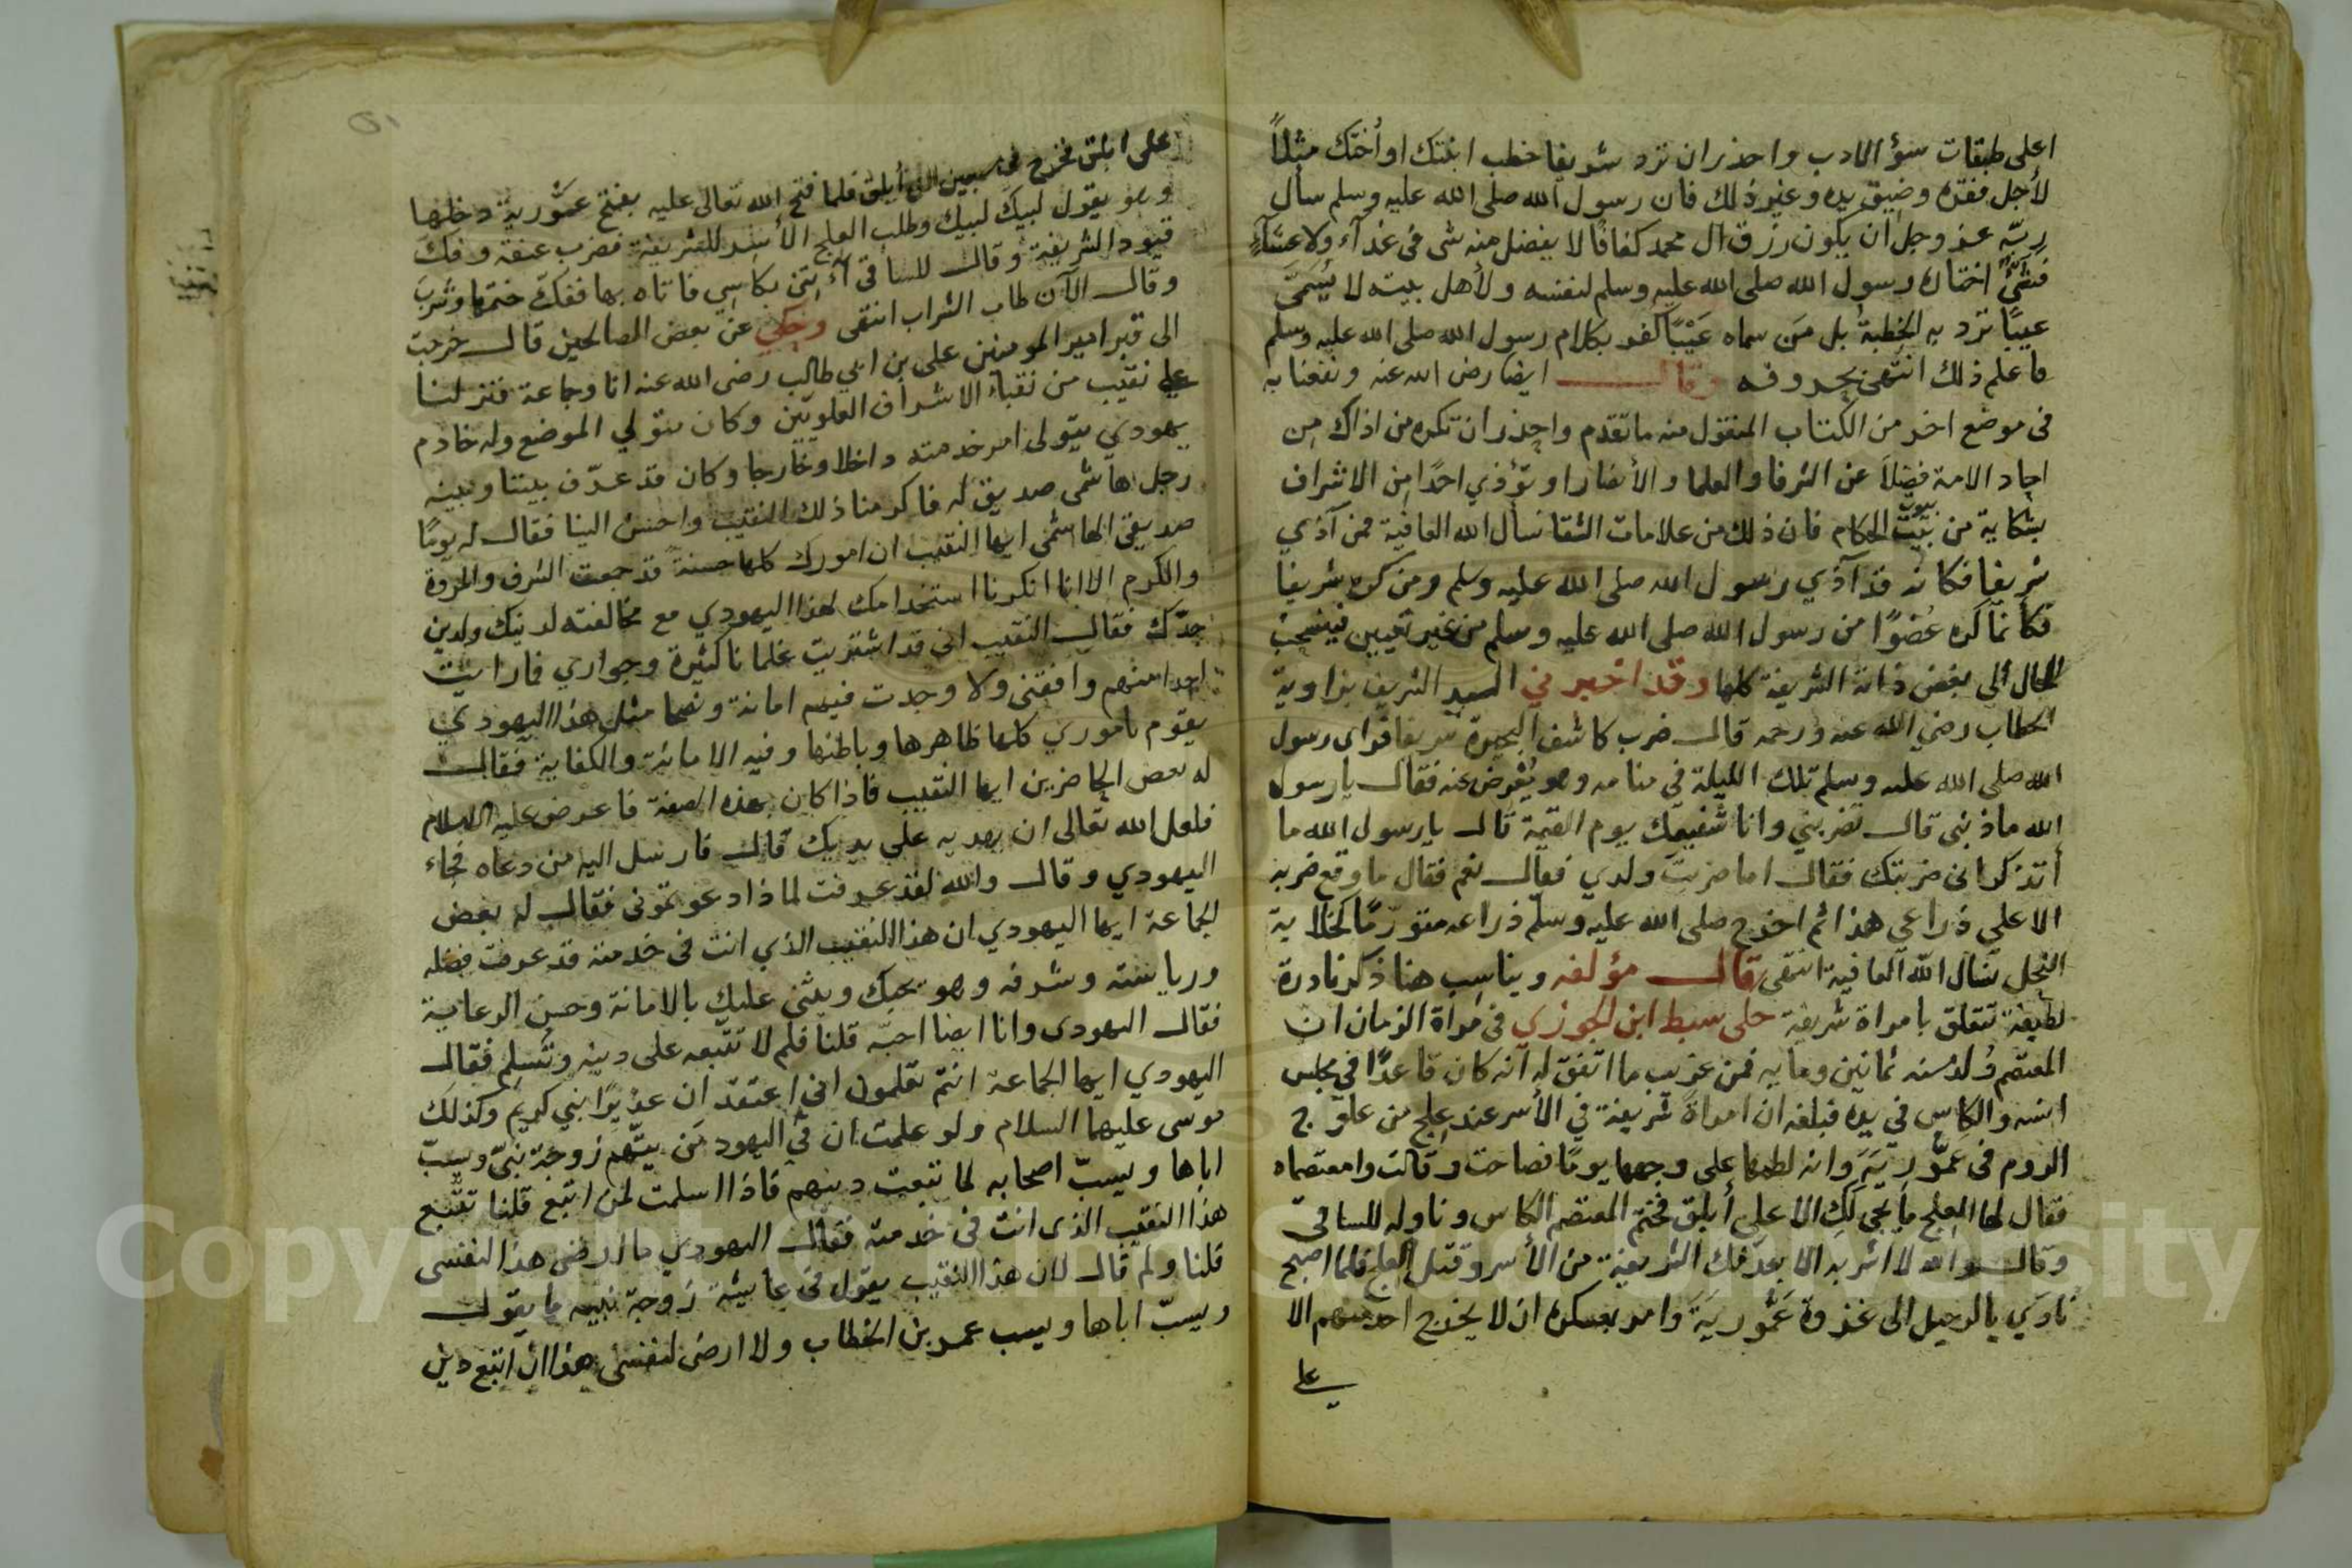 اعلى طبقات سؤ الادب واحذر ان ترد شريفا خطب ابنتك او أختك مثلاً
لأجل فقره وضيق يده وغير ذلك فان رسول الله صلى الله عليه وسلم سأل
ربّه عز وجل ان يكون رزق ال محمد كفافا لا يفضل منه شى فى غدآء ولا عشآءٍ
فشئٌ اختاره رسول الله صلى الله عليه وسلم لنفسه ولأهل بيته لا يُسَمَّى
عيبًا ترد به الخطبة بل مَن سماه عَيْبًا كفر بكلام رسول الله صلى الله عليه وسلم
فاعلم ذلك انتهى بحروفه وقال ايضا رضى الله عنه ونفعنا به
فى موضع اخر من الكتاب المنقول منه ما تقدم واحذر ان تكره من اذاك من
احاد الامة فضلاً عن الشرفا والعلما والأنصار او تؤذي احدًا من الاشراف
بشكاية من بيت بيوت الحكام فان ذلك من علامات الشقا نسأل الله العافية فمن آذي
شريفا فكانه قد آذي رسول الله صلى الله عليه وسلم ومن كره شريفا
فكانما كره عُضوًا من رسول الله صلى الله عليه وسلم من غير تعيين فينسحب
الحال الى بغض ذاته الشريفة كلها وقد اخبرني السيد الشريف بزاوية
الحطاب رضي الله عنه ورحمه قال ضرب كاشف البحيرة شريفا فراى رسول
الله صلى الله عليه وسلم تلك الليلة في منامه وهو يُعْرض عنه فقال يا رسول
الله ماذنبى قال تضربني وانا شفيعك يوم القيمة قال يا رسول الله ما
أتذكر انى ضربتك فقال اما ضربت ولدي فقال نعم فقال ما وقع ضربه
الا على ذراعي هذا ثم اخرج صلى الله عليه وسلم ذراعه متورّمًا كخلاية
النحل نسال الله العافية انتهى قال مؤلفه ويناسب هنا ذكر نادرة
لطيفة تتعلق بامراة شريفة حكى سبط ابن الجوزي فى مراة الزمان ان
المعتصم وُلد سنه ثمانين ومايه فمن غريب ما اتفق له انه كان قاعدًا في مجلس
انسه والكاس في يده فبلغه ان امراةً شريفة في الأسر عند علج من علوج
الروم فى عمّوريَّة وانه لطمها على وجهها يومًا فصاحت وقالت وامعتصماه
فقال لها العلج ما يجي لكِ الا على أبلق فختم المعتصم الكاس وناوله للساقى
وقال والله لا اشربه الا بعد فك الشريفة من الأسر وقتل العلج فلما اصبح
نادي بالرحيل الى غزوة عَمُّوريَّة وامر بعسكره ان لا يخرج احد منهم الا
على
على ابلق فخرج فى سبعين الف أبلق فلما فتح الله تعالى عليه بفتح عَمُّورية دخلها
وهو يقول لبيك لبيك وطلب العلج الأسر للشريفة فضرب عنقه وفك
قيود الشريفة وقال للساقى آئتنى بكاسي فاتاه بها ففك ختمها وشرب
وقال الآن طاب الشراب انتهى وحكي عن بعض الصالحين قال خرجت
الى قبر امير المومنين على بن ابي طالب رضى الله عنه انا وجماعة فنزلنا
على نقيب من نقباء الاشراف العلويين وكان متولي الموضع وله خادم
يهودي يتولى امر خدمته داخلا وخارجا وكان قد عرّف بيننا وبينه
رجل هاشمى صديق له فاكرمنا ذلك النقيب واحسن الينا فقال له يومًا
صديقى الهاشمى ايها النقيب ان امورك كلها حسنة قد جمعت الشرف والمروة
والكرم الا انا انكرنا استخدامك لهذا اليهودي مع مخالفته لدينك ولدين
جدّك فقال النقيب انى قد اشتريت غلمانا كثيرة وجواري فما رايت
احدا منهم وافقنى ولا وجدت فيهم امانة ونصحا مثل هذا اليهودي
يقوم باموري كلها ظاهرها وباطنها وفيه الامانة والكفاية فقال
له بعض الحاضرين ايها النقيب فاذا كان بهذه الصفة فاعرض عليه الاسلام
فلعل الله تعالى ان يهديه على يديك قال فارسل اليه من دعاه فجاء
اليهودي وقال والله لقد عرفت لماذا دعوتمونى فقال له بعض
الجماعة ايها اليهودي ان هذا النقيب الذي انت فى خدمته قد عرفت فضله
ورياسته وشرفه وهو يحبك ويثنى عليك بالامانة وحسن الرعاية
فقال اليهودى وانا ايضا احبّه قلنا فلم لا تتبعه على دينه وتُسلم فقال
اليهودي ايها الجماعة انتم تعلمون انى اعتقد ان عزيرًا نبي كريم وكذلك
موسى عليهما السلام ولو علمت ان في اليهود مَن يتّهم زوجة نبيّ ويسبّ
اباها ويسبّ اصحابه لما تبعت دينهم فاذا اسلمت لمن اتبع قلنا تتّبع
هذا النقيب الذى انت فى خدمته فقال اليهودي ما ارضى هذا لنفسى
قلنا ولمَ قال لان هذا النقيب يقول فى عايشة زوجة نبيه ما يقول
ويسبّ اباها ويسب عمر بن الخطاب ولا ارضى لنفسى هذا ان اتبع دين
Copyright © King Saud University